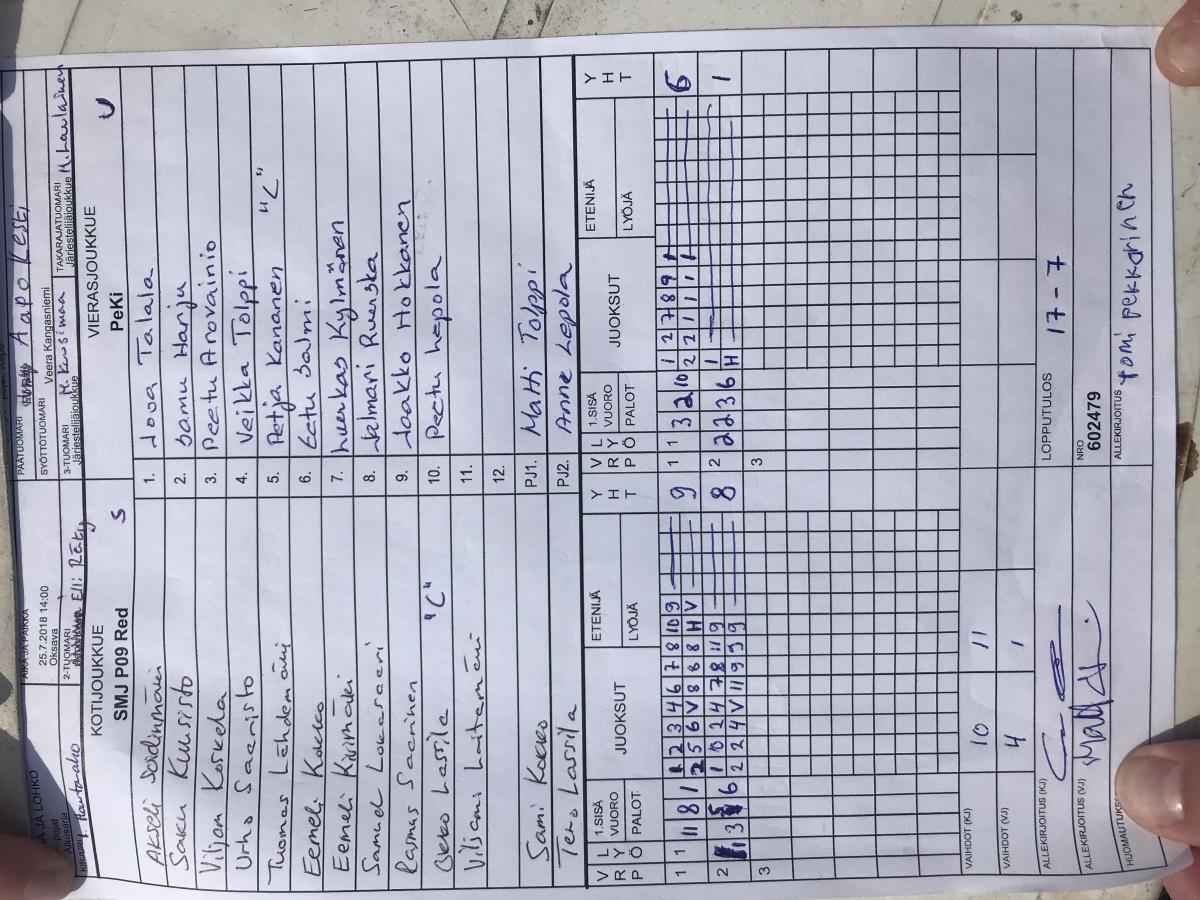 AIKA JA PAIKKA
25.7.2018 14:00
Oksava
PÄÄTUOMARI Aapo Kesti
SYÖTTÖTUOMARI Veera Kangasniemi
2-TUOMARI Eli Räty
3-TUOMARI Järjestelijäjoukkue M. Kuusimaa
TAKARAJATUOMARI Järjestelijäjoukkue M. Laulainen
KOTIJOUKKUE
SMJ P09 Red S
1. Akseli Soidinmäki
2. Saku Kuusisto
3. Viljam Koskela
4. Urho Saaristo
5. Tuomas Lähdemäki
6. Eemeli Kokko
7. Eemeli Kivimäki
8. Samuel
9. Rasmus Saarinen
10. Lassila "C"
11. Viljami
12.
PJ1. Sami Kokko
PJ2. Tero Lassila
VIERASJOUKKUE
PeKi U
Joona Talala
Samu Harju
Peetu Arovainio
Veikka Tolppi
Petja Kananen "C"
Eetu Salmi
Luukas Kylmänen
Jalmari Ruuska
Jaakko Hokkanen
Peetu Lepola
Matti Tolppi
Anne Lepola
V R P L Y Ö 1.SISÄ VUORO PALOT JUOKSUT ETENIJÄ LYÖJÄ Y H T
V R P L Y Ö 1.SISÄ VUORO PALOT JUOKSUT ETENIJÄ LYÖJÄ Y H T
1 1 11 8 1 1 2 3 4 6 7 8 10 9 9
2 5 6 V 8 8 8 H V
2 1 10 2 4 7 8 11 9 8
2 2 4 V 11 9 9 9
3
1 1 3 2 10 1 2 7 8 9 1 6
2 2 1 1 1 1
2 2 2 3 6 1 1
H
3
VAIHDOT (KJ) 10 11
VAIHDOT (VJ) 4 1
ALLEKIRJOITUS (KJ)
LOPPUTULOS 17 - 7
ALLEKIRJOITUS (VJ)
NRO
602479
HUOMAUTUKS
ALLEKIRJOITUS Tomi Pekkarinen